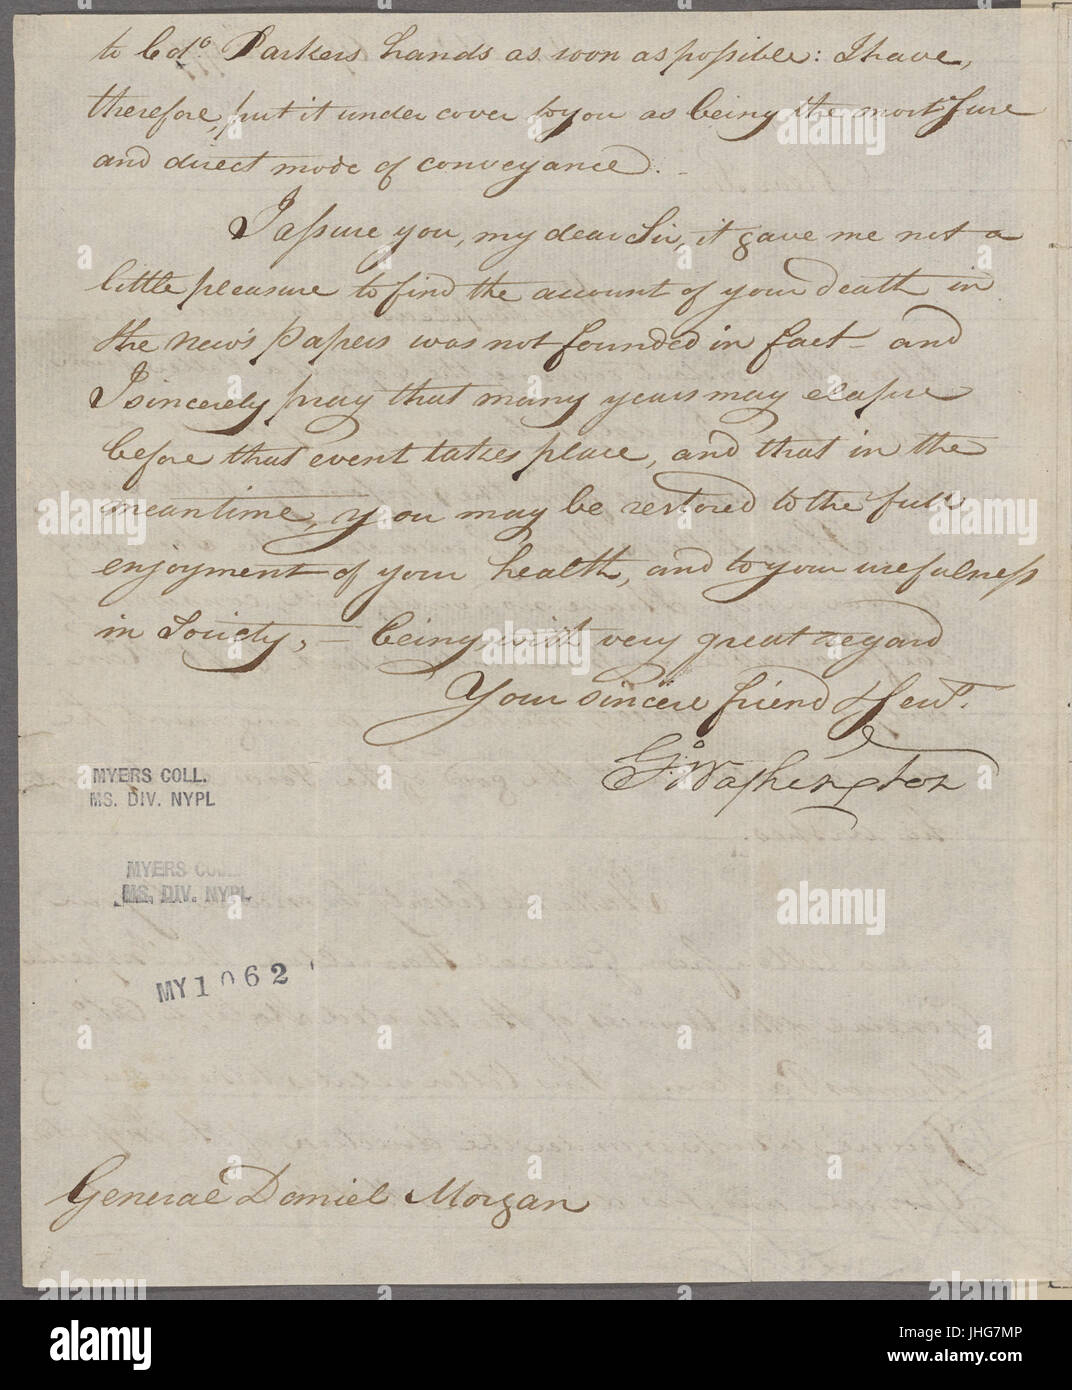 to Col.o Parkers hands as soon as possible: I have,
therefore, put it under cover to you as being the most sure
and direct mode of conveyance.
I assure you, my dear Sir, it gave me not a
little pleasure to find the account of your death in
the news papers was not founded in fact – and
I sincerely pray that many years may elapse
before that event takes place, and that in the
meantime, you may be restored to the full
enjoyment of your health, and to your usefulness
in Society, – being, with very great regard
Your sincere friend & Servt.
Go Washington
MYERS COLL.
MS. DIV. NYPL
MYERS COLL.
MS. DIV. NYPL
MY 1062
General Daniel Morgan
alamy
Image ID: JHG7MP
www.alamy.com